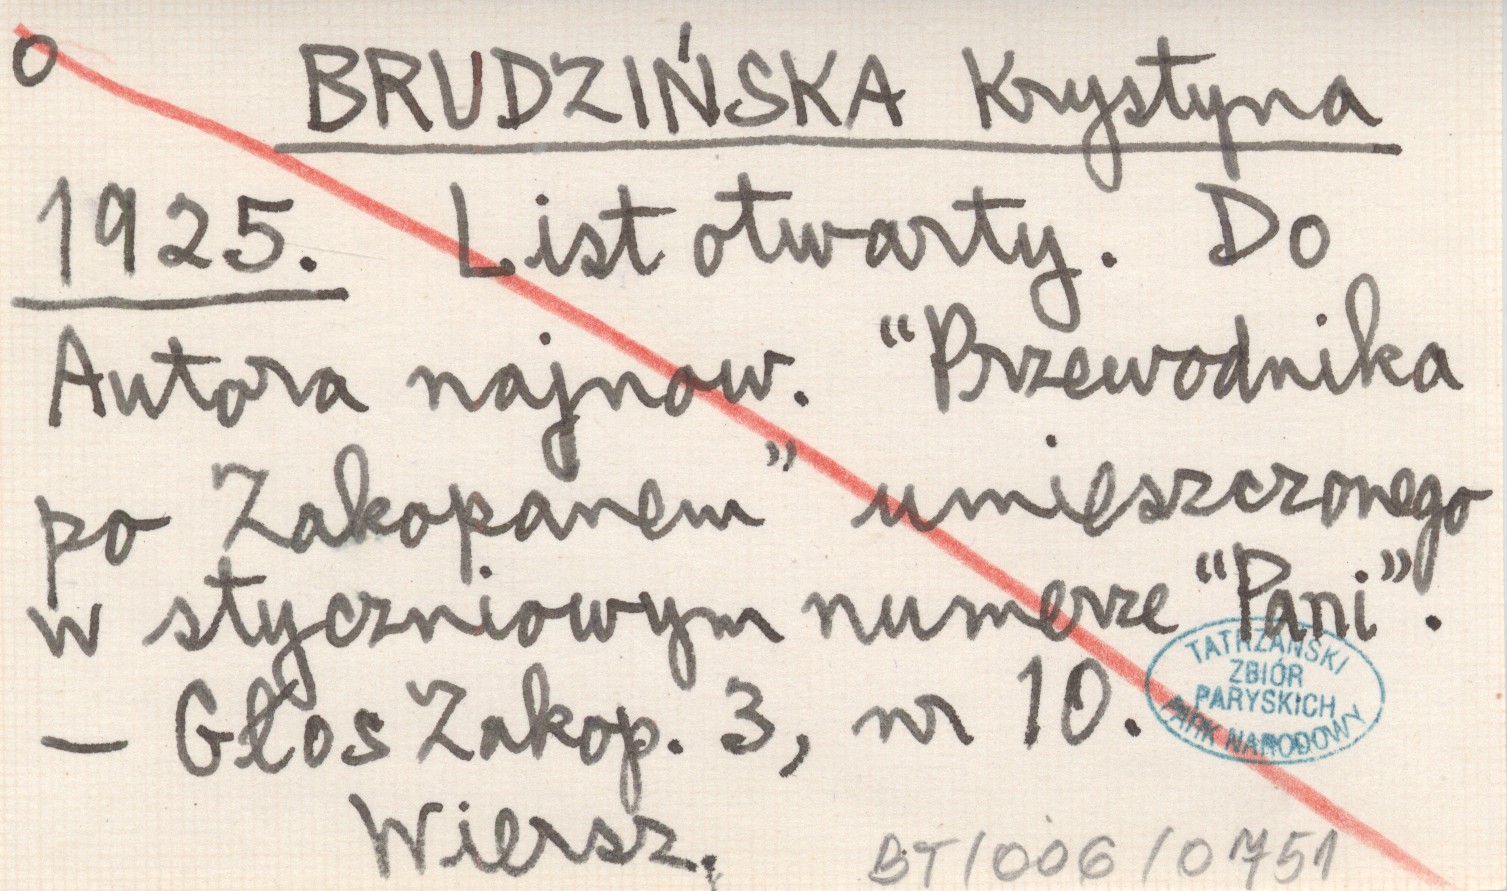 o BRUDZIŃSKA Krystyna
1925. List otwarty. Do
Autora najnow. “Przewodnika
po Zakopanem” umieszczonego
w styczniowym numerze “Pani”.
— Głos Zakop. 3, nr 10.
Wiersz.
TATRZAŃSKI
ZBIÓR
PARYSKICH
PARK NARODOWY
BT/006/0751